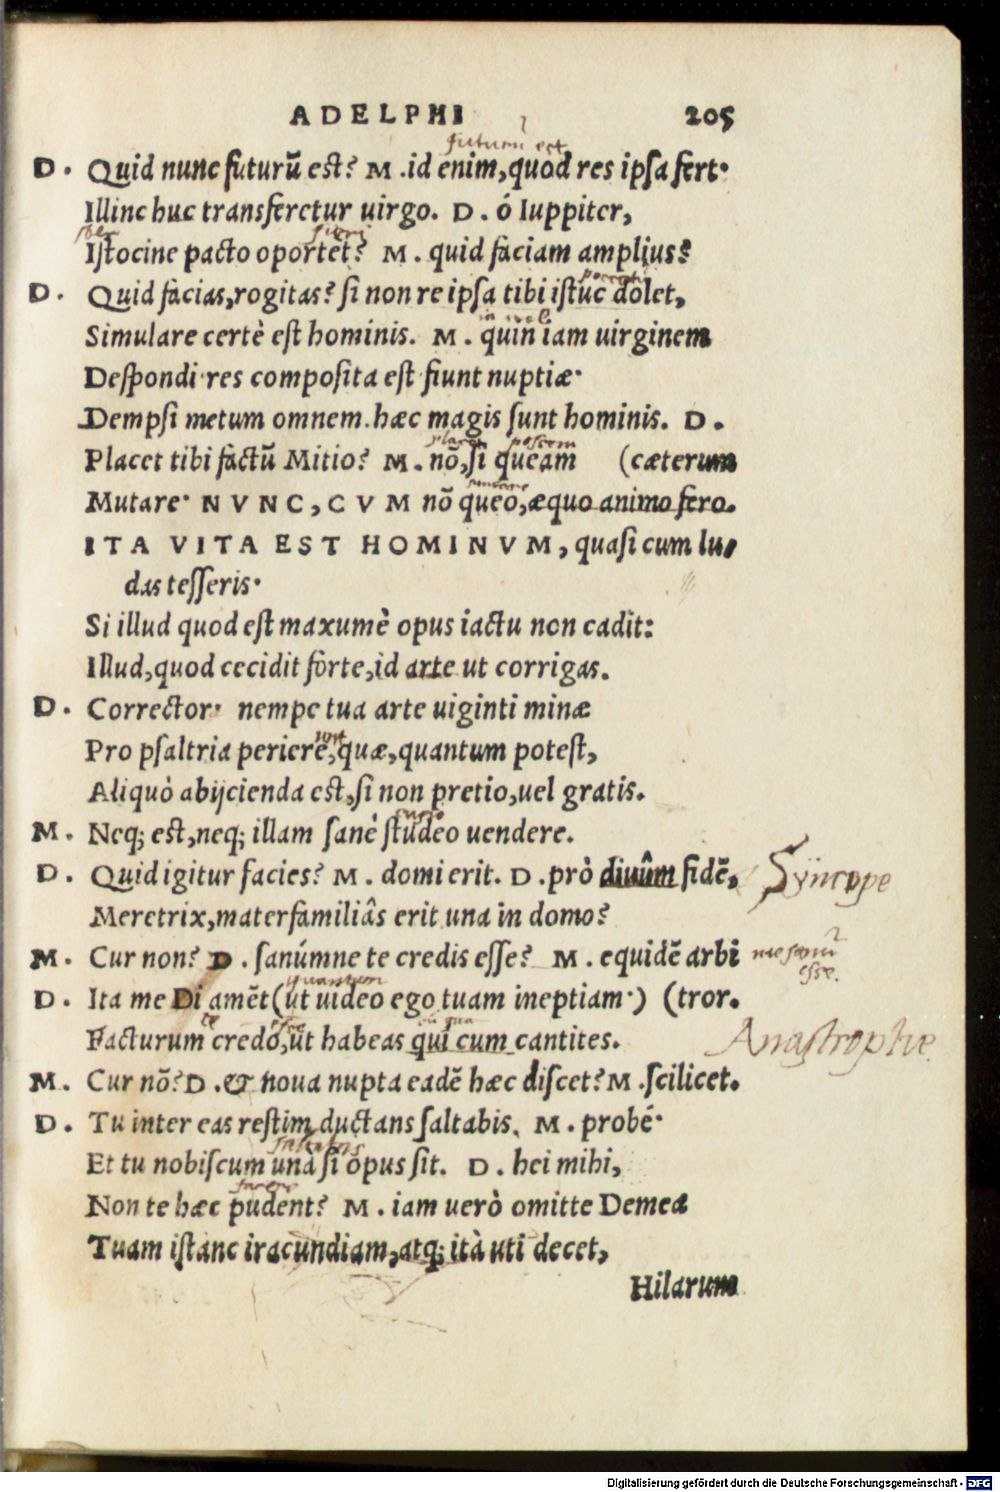 ADELPHI 205
futurum est
D. Quid nunc futurũ est? M. id enim, quod res ipsa fert.
Illinc huc transferetur uirgo. D. ó Iuppiter,
Istocine pacto oportet? M. quid faciam amplius?
D. Quid facias, rogitas? si non re ipsa tibi istuc dolet,
Simulare certè est hominis. M. quin iam uirginem
Despondi· res composita est· fiunt nuptiæ·
Dempsi metum omnem. hæc magis sunt hominis. D.
Placet tibi factũ Mitio? M. nõ, si queam (cæterum
Mutare· NVNC, CVM nõ queo, æquo animo fero.
ITA VITA EST HOMINVM, quasi cum lu-
das tesseris·
Si illud quod est maxumè opus iactu non cadit:
Illud, quod cecidit forte, id arte ut corrigas.
D. Corrector· nempe tua arte uiginti minæ
Pro psaltria periere, quæ, quantum potest,
Aliquò abijcienda est, si non pretio, uel gratis.
M. Neq; est, neq; illam sanè studeo uendere.
D. Quid igitur facies? M. domi erit. D. prò diuûm fidẽ, Syncope
Meretrix, materfamiliâs erit una in domo?
M. Cur non? D. sanúmne te credis esse? M. equidẽ arbi me sanũ
esse.
D. Ita me Di amẽt (ut uideo ego tuam ineptiam·) (tror.
quantum
Facturum credo, ut habeas qui cum cantites. Anastrophe
M. Cur nõ? D. & noua nupta eadẽ hæc discet? M. scilicet.
D. Tu inter eas restim ductans saltabis. M. probé·
Et tu nobiscum unà si opus sit. D. hei mihi,
Non te hæc pudent? M. iam uerò omitte Demea
Tuam istanc iracundiam, atq; ità uti decet,
Hilarum
Digitalisierung gefördert durch die Deutsche Forschungsgemeinschaft - DFG